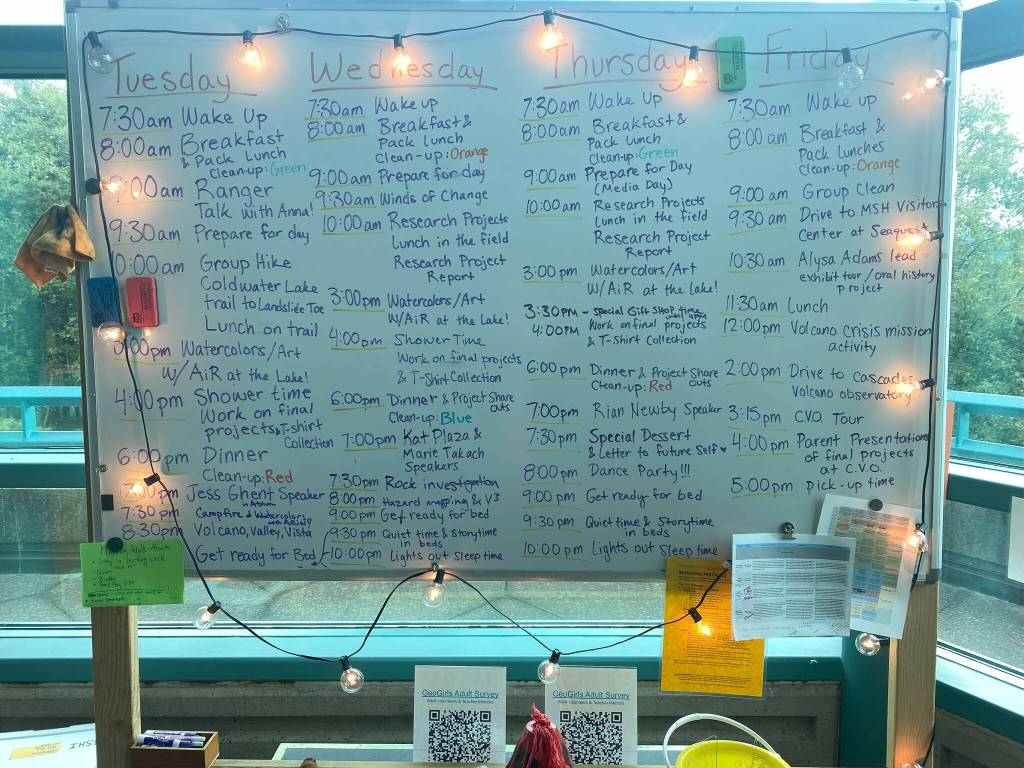 Tuesday
7:30am Wake Up
8:00am Breakfast
& Pack Lunch
Clean-up: Green
9:00am Ranger
Talk with Anna!
9:30am Prepare for day
10:00am Group Hike
Coldwater Lake
trail to Landslide Toe
Lunch on trail
3:00pm Watercolors/Art
W/AiR at the Lake!
4:00pm Shower time
Work on final
projects & T-shirt
Collection
6:00pm Dinner
Clean-up: Red
7:00pm Jess Ghent Speaker
7:30pm Campfire & Watercolors
8:30pm Volcano, Valley, Vista
Get ready for Bed
Wednesday
7:30am Wake up
8:00am Breakfast &
Pack Lunch
Clean-up: Orange
9:00am Prepare for day
9:30am Winds of Change
10:00am Research Projects
Lunch in the field
Research Project
Report
3:00pm Watercolors/Art
W/AiR at the Lake!
4:00pm Shower Time
Work on final projects
& T-Shirt Collection
6:00pm Dinner & Project Share
outs
Clean-up: Blue
7:00pm Kat Plaza &
Marie Takach
Speakers
7:30pm Rock investigation
8:00pm Hazard mapping & V3
9:00pm Get ready for bed
9:30pm Quiet time & Storytime
in beds
10:00pm Lights out Sleep time
Thursday
7:30am Wake Up
8:00am Breakfast &
Pack Lunch
Clean-up: Green
9:00am Prepare for Day
(Media Day)
10:00am Research Projects
Lunch in the field
Research Project
Report
3:00pm Watercolors/Art
W/AiR at the Lake!
3:30pm - Special Gift Shop time
until 4pm
4:00pm Work on final projects
& T-Shirt Collection
6:00pm Dinner & Project Share
outs
Clean-up: Red
7:00pm Rian Newby Speaker
7:30pm Special Dessert
& Letter to future Self ♥
8:00pm Dance Party!!!
9:00pm Get ready for bed
9:30pm Quiet time & Storytime
in beds
10:00pm Lights out Sleep time
Friday
7:30am Wake up
8:00am Breakfast &
Pack Lunches
Clean-up: Orange
9:00am Group Clean
9:30am Drive to MSH Visitor
Center at Seaquest
10:30am Alysa Adams lead
exhibit tour / oral history
project
11:30am Lunch
12:00pm Volcano crisis mission
activity
2:00pm Drive to Cascades
Volcano observatory
3:15pm C.V.O. Tour
4:00pm Parent Presentations
of final projects
at C.V.O.
5:00pm Pick-up time
GeoGirls Adult Survey
Adult volunteers & Teacher Mentors
GeoGirls Adult Survey
Adult volunteers & Teacher Mentors